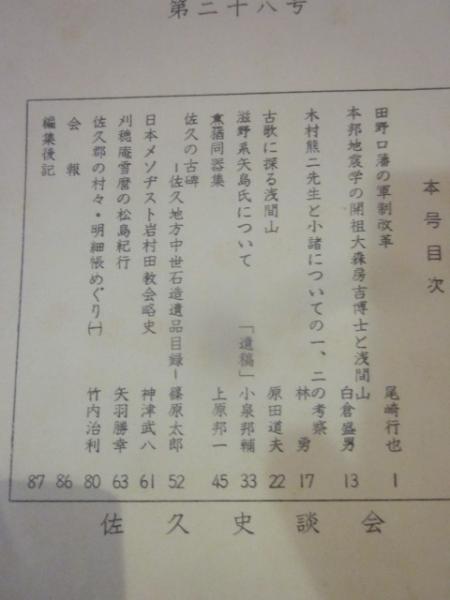 第二十八号
本号目次
田野口藩の軍制改革 尾崎行也 1
本邦地震学の開祖大森房吉博士と浅間山 白倉盛男 13
木村熊二先生と小諸についての一、二の考察 林勇 17
古歌に探る浅間山 原田道夫 22
滋野系矢島氏について 「遺稿」 小泉邦輔 33
薫蕕同器集 上原邦一 45
佐久の古碑
―佐久地方中世石造遺品目録― 篠原太郎 52
日本メソヂスト岩村田教会略史 神津武八 61
刈穂庵雪麿の松島紀行 矢羽勝幸 63
佐久郡の村々・明細帳めぐり(一) 竹内治利 80
会報 86
編集後記 87
佐久史談会